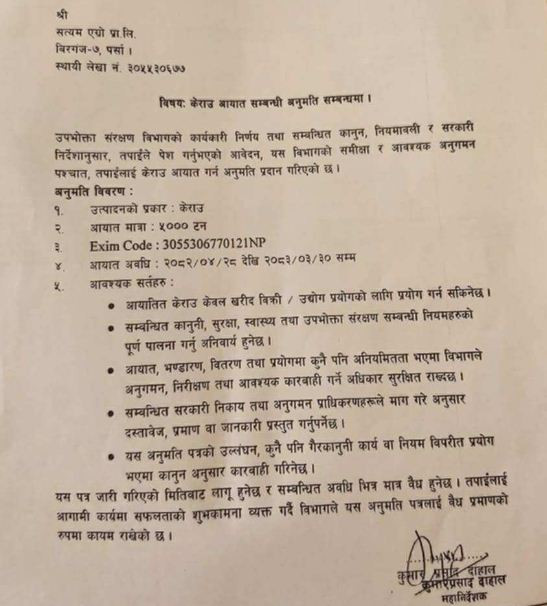 श्री
सत्यम एग्रो प्रा.लि.
बिरगंज-७, पर्सा ।
स्थायी लेखा नं. ३०५५३०६७७
विषय: केराउ आयात सम्बन्धी अनुमति सम्बन्धमा ।
उपभोक्ता संरक्षण विभागको कार्यकारी निर्णय तथा सम्बन्धित कानुन, नियमावली र सरकारी
निर्देशानुसार, तपाईंले पेश गर्नुभएको आवेदन, यस विभागको समीक्षा र आवश्यक अनुगमन
पश्चात, तपाईंलाई केराउ आयात गर्न अनुमति प्रदान गरिएको छ ।
अनुमति विवरण :
१. उत्पादनको प्रकार : केराउ
२. आयात मात्रा : ५००० टन
३. Exim Code : 3055306770121NP
४. आयात अवधि : २०८२/०४/२८ देखि २०८३/०३/३० सम्म
५. आवश्यक सर्तहरु :
• आयातित केराउ केवल खरीद बिक्री / उद्योग प्रयोगको लागि प्रयोग गर्न सकिनेछ ।
• सम्बन्धित कानुनी, सुरक्षा, स्वास्थ्य तथा उपभोक्ता संरक्षण सम्बन्धी नियमहरुको
पूर्ण पालना गर्नु अनिवार्य हुनेछ ।
• आयात, भण्डारण, वितरण तथा प्रयोगमा कुनै पनि अनियमितता भएमा विभागले
अनुगमन, निरीक्षण तथा आवश्यक कारवाही गर्ने अधिकार सुरक्षित राख्दछ ।
• सम्बन्धित सरकारी निकाय तथा अनुगमन प्राधिकरणहरूले माग गरे अनुसार
दस्तावेज, प्रमाण वा जानकारी प्रस्तुत गर्नुपर्नेछ ।
• यस अनुमति पत्रको उल्लंघन, कुनै पनि गैरकानुनी कार्य वा नियम विपरीत प्रयोग
भएमा कानुन अनुसार कारवाही गरिनेछ ।
यस पत्र जारी गरिएको मितिबाट लागू हुनेछ र सम्बन्धित अवधि भित्र मात्र वैध हुनेछ । तपाईंलाई
आगामी कार्यमा सफलताको शुभकामना व्यक्त गर्दै विभागले यस अनुमति पत्रलाई वैध प्रमाणको
रुपमा कायम राखेको छ ।
कुमार प्रसाद दाहाल
कुमारप्रसाद दाहाल
महानिर्देशक